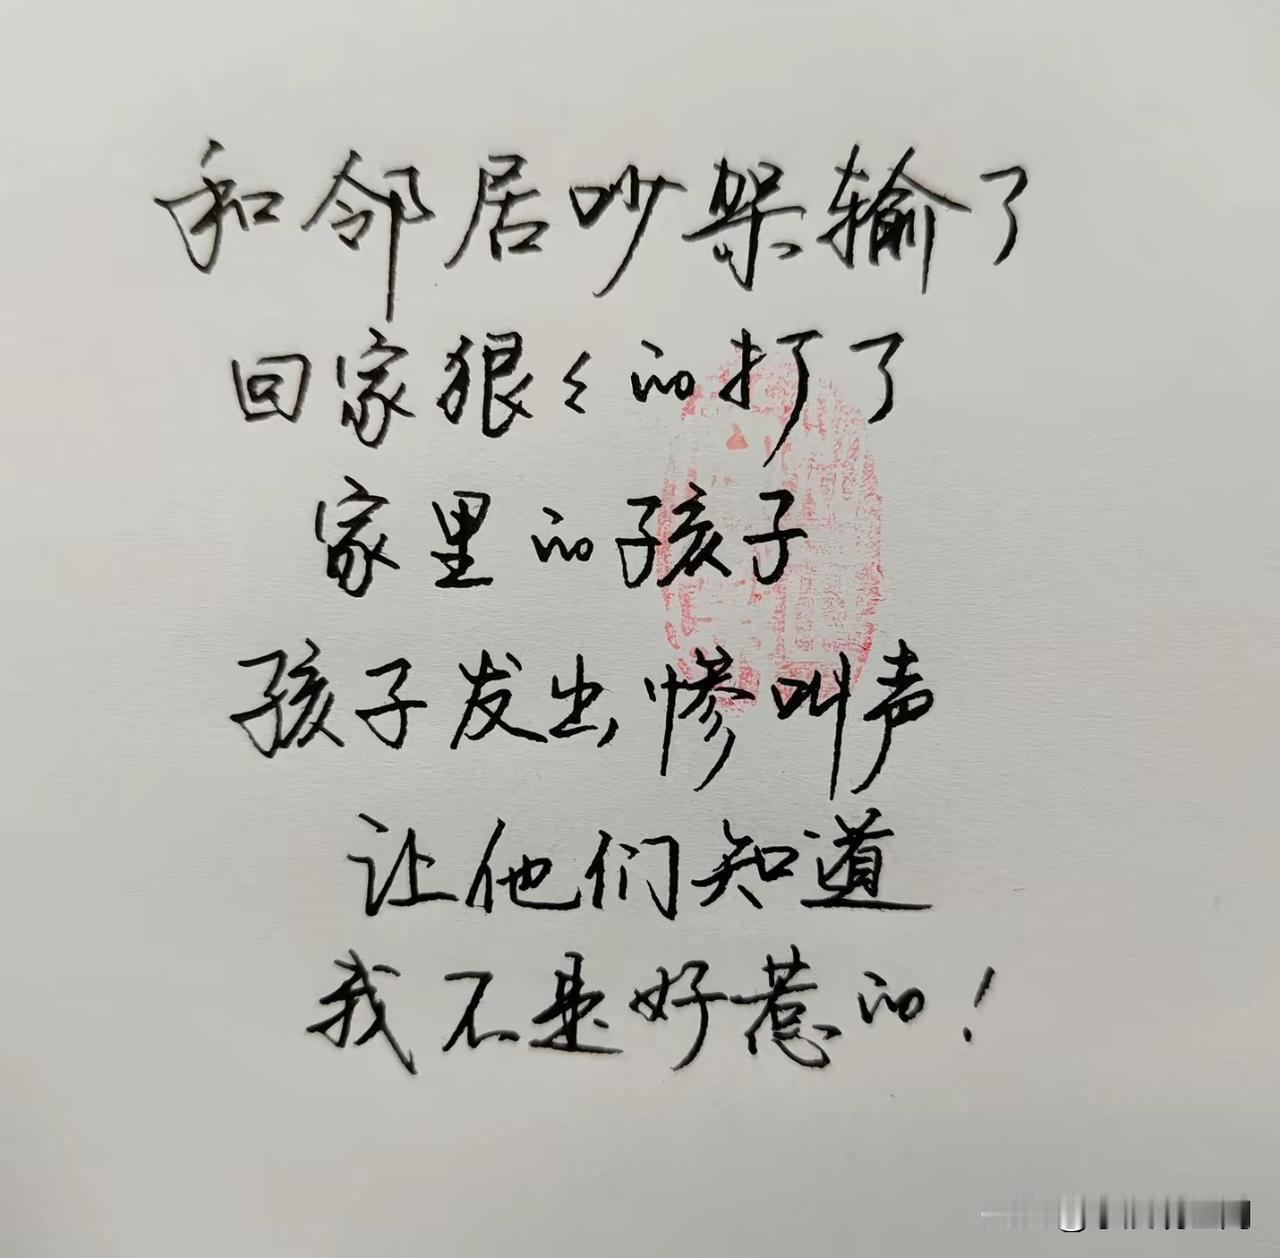 和邻居吵架输了
回家狠々的打了
家里的孩子
孩子发出惨叫声
让他们知道
我不是好惹的！